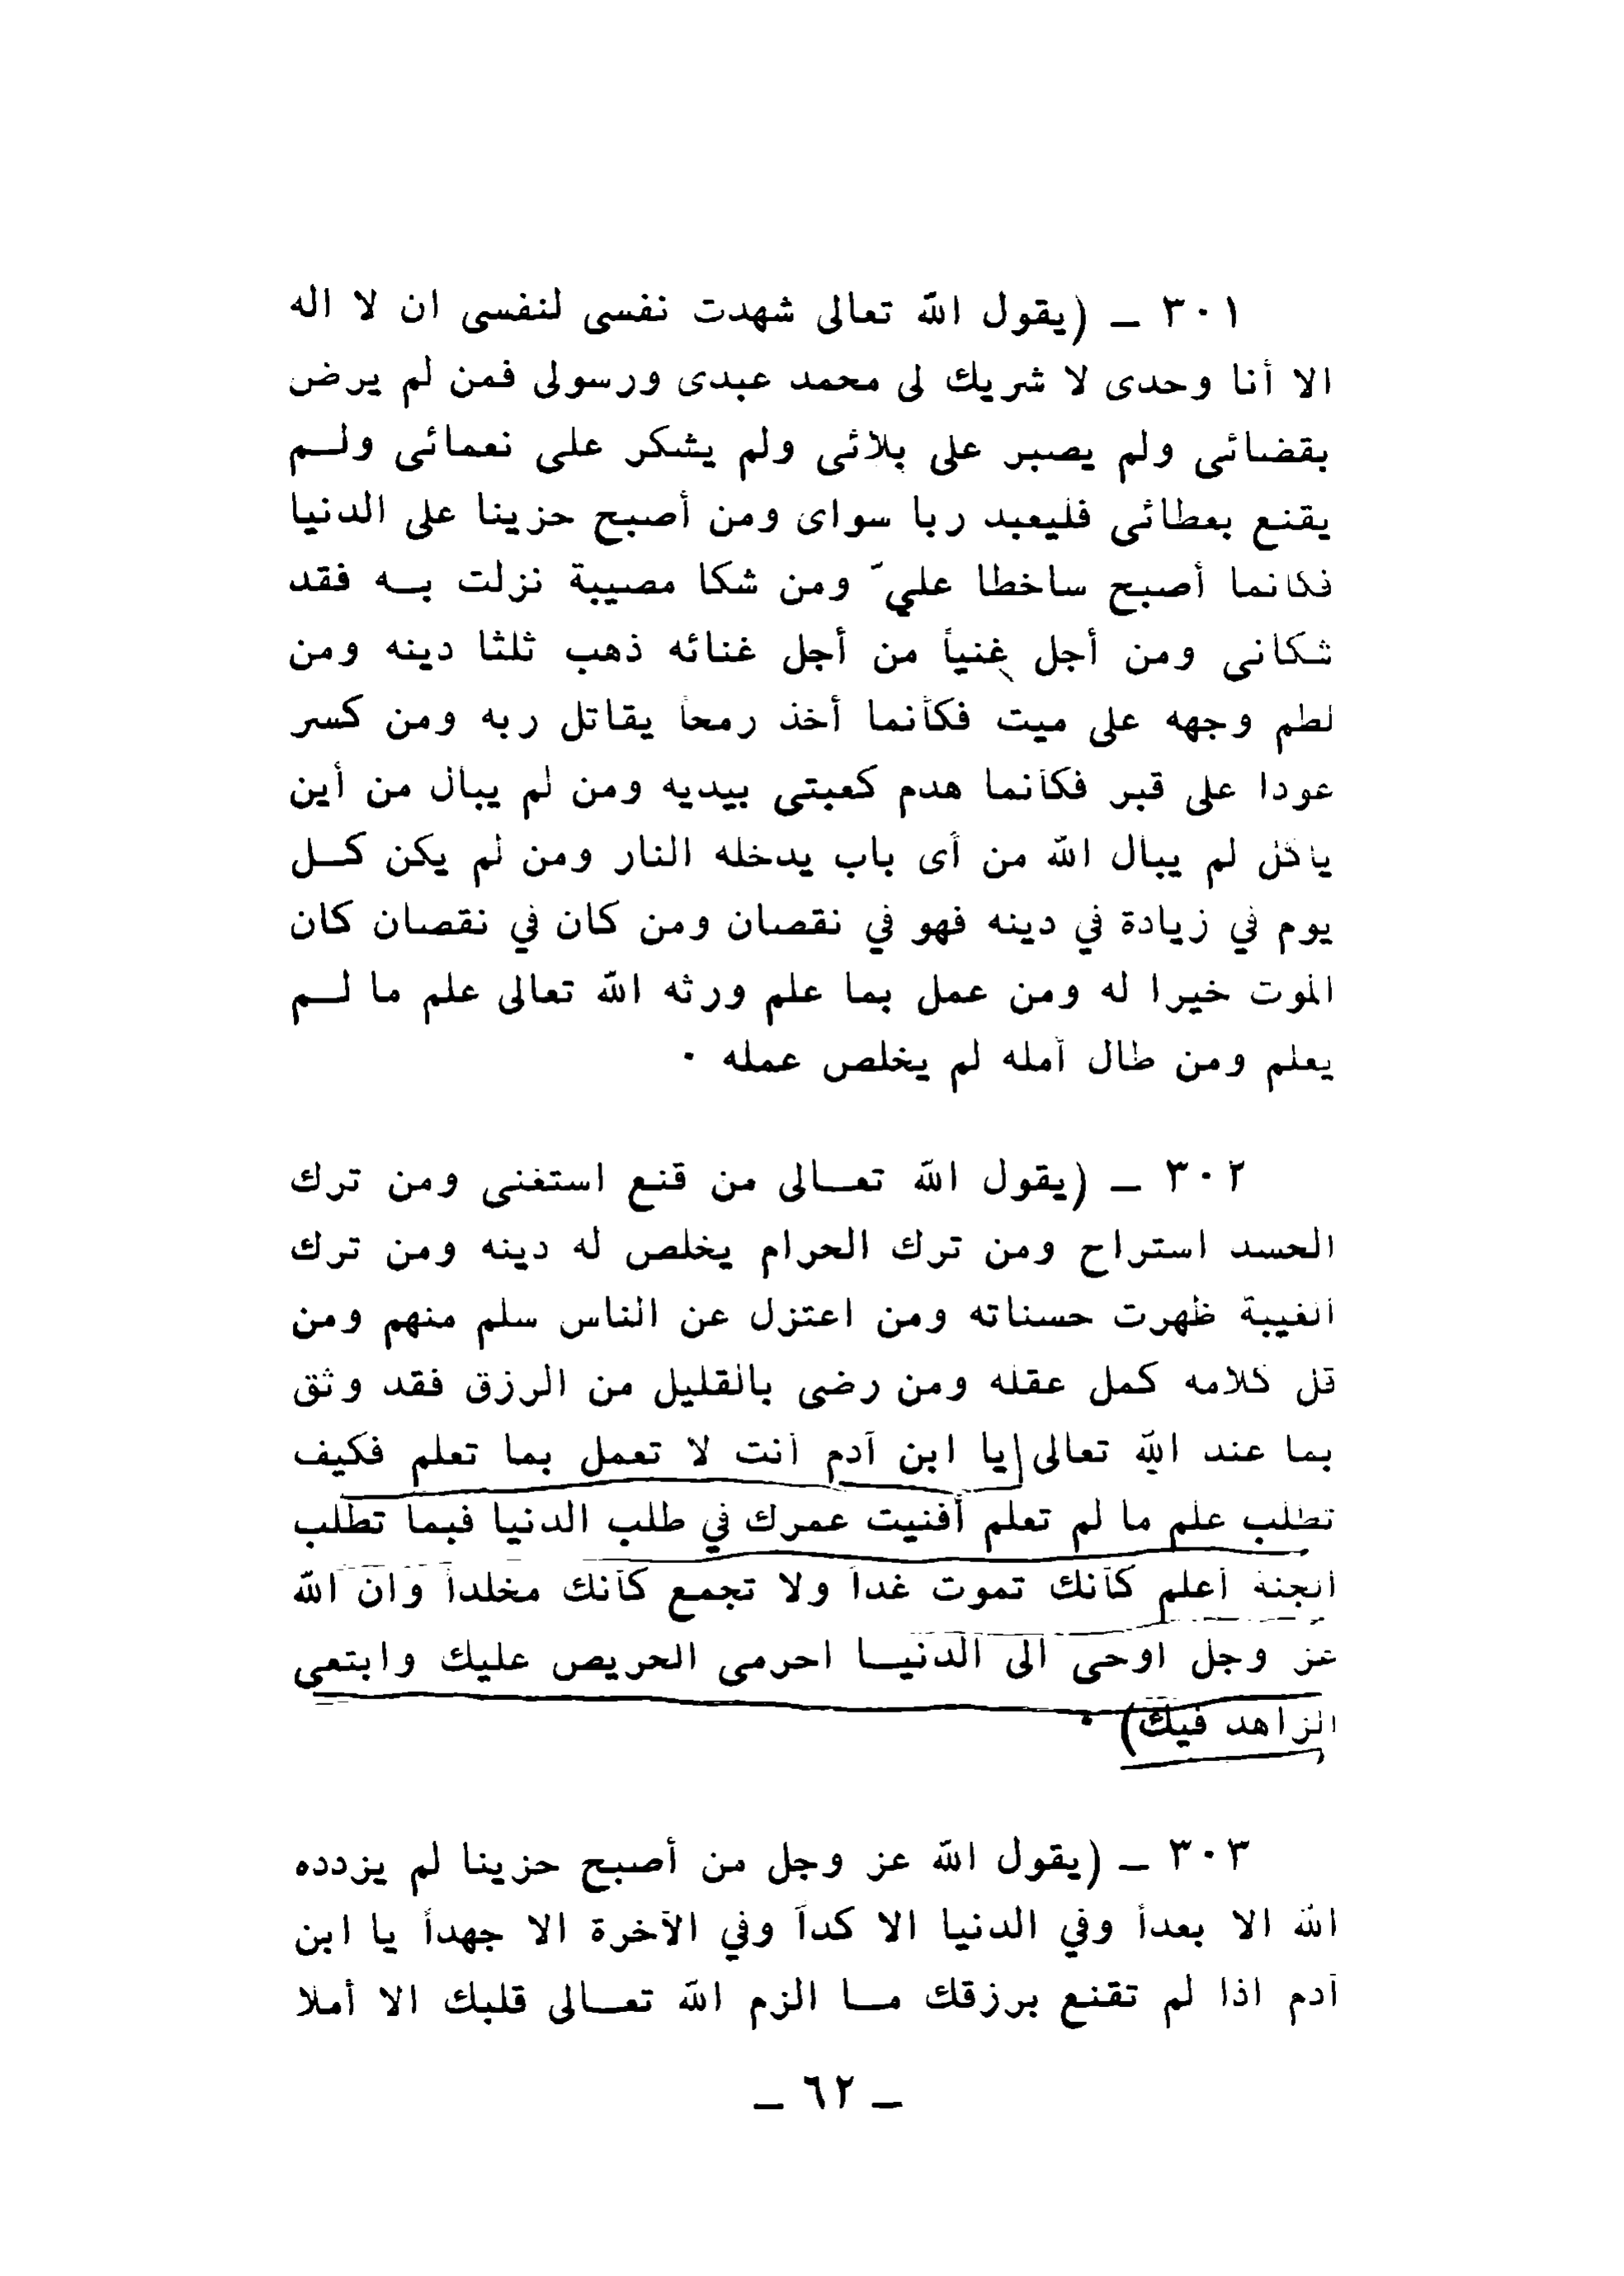 ٣٠١ ـ (يقول الله تعالى شهدت نفسى لنفسى ان لا اله
الا أنا وحدى لا شريك لى محمد عبدى ورسولى فمن لم يرض
بقضائى ولم يصبر على بلائى ولم يشكر على نعمائى ولـم
يقنع بعطائى فليعبد ربا سواى ومن أصبح حزينا على الدنيا
فكانما أصبح ساخطا عليّ ومن شكا مصيبة نزلت بـه فقد
شكانى ومن أجل غنياً من أجل غنائه ذهب ثلثا دينه ومن
لطم وجهه على ميت فكأنما أخذ رمحاً يقاتل ربه ومن كسر
عودا على قبر فكأنما هدم كعبتى بيديه ومن لم يبال من أين
يأكل لم يبال الله من أى باب يدخله النار ومن لم يكن كـل
يوم في زيادة في دينه فهو في نقصان ومن كان في نقصان كان
الموت خيرا له ومن عمل بما علم ورثه الله تعالى علم ما لـم
يعلم ومن طال أمله لم يخلص عمله ·
٣٠٢ ـ (يقول الله تعـالى من قنع استغنى ومن ترك
الحسد استراح ومن ترك الحرام يخلص له دينه ومن ترك
الغيبة ظهرت حسناته ومن اعتزل عن الناس سلم منهم ومن
قل كلامه كمل عقله ومن رضى بالقليل من الرزق فقد وثق
بما عند الله تعالى يا ابن آدم أنت لا تعمل بما تعلم فكيف
تطلب علم ما لم تعلم أفنيت عمرك في طلب الدنيا فبما تطلب
الجنة أعلم كأنك تموت غداً ولا تجمع كأنك مخلداً وان الله
عز وجل اوحى الى الدنيـا احرمى الحريص عليك وابتعى
الزاهد فيك) ·
٣٠٣ ـ (يقول الله عز وجل من أصبح حزينا لم يزدده
الله الا بعداً وفي الدنيا الا كداً وفي الآخرة الا جهداً يا ابن
آدم اذا لم تقنع برزقك مـا الزم الله تعـالى قلبك الا أملا
ـ ٦٢ ـ